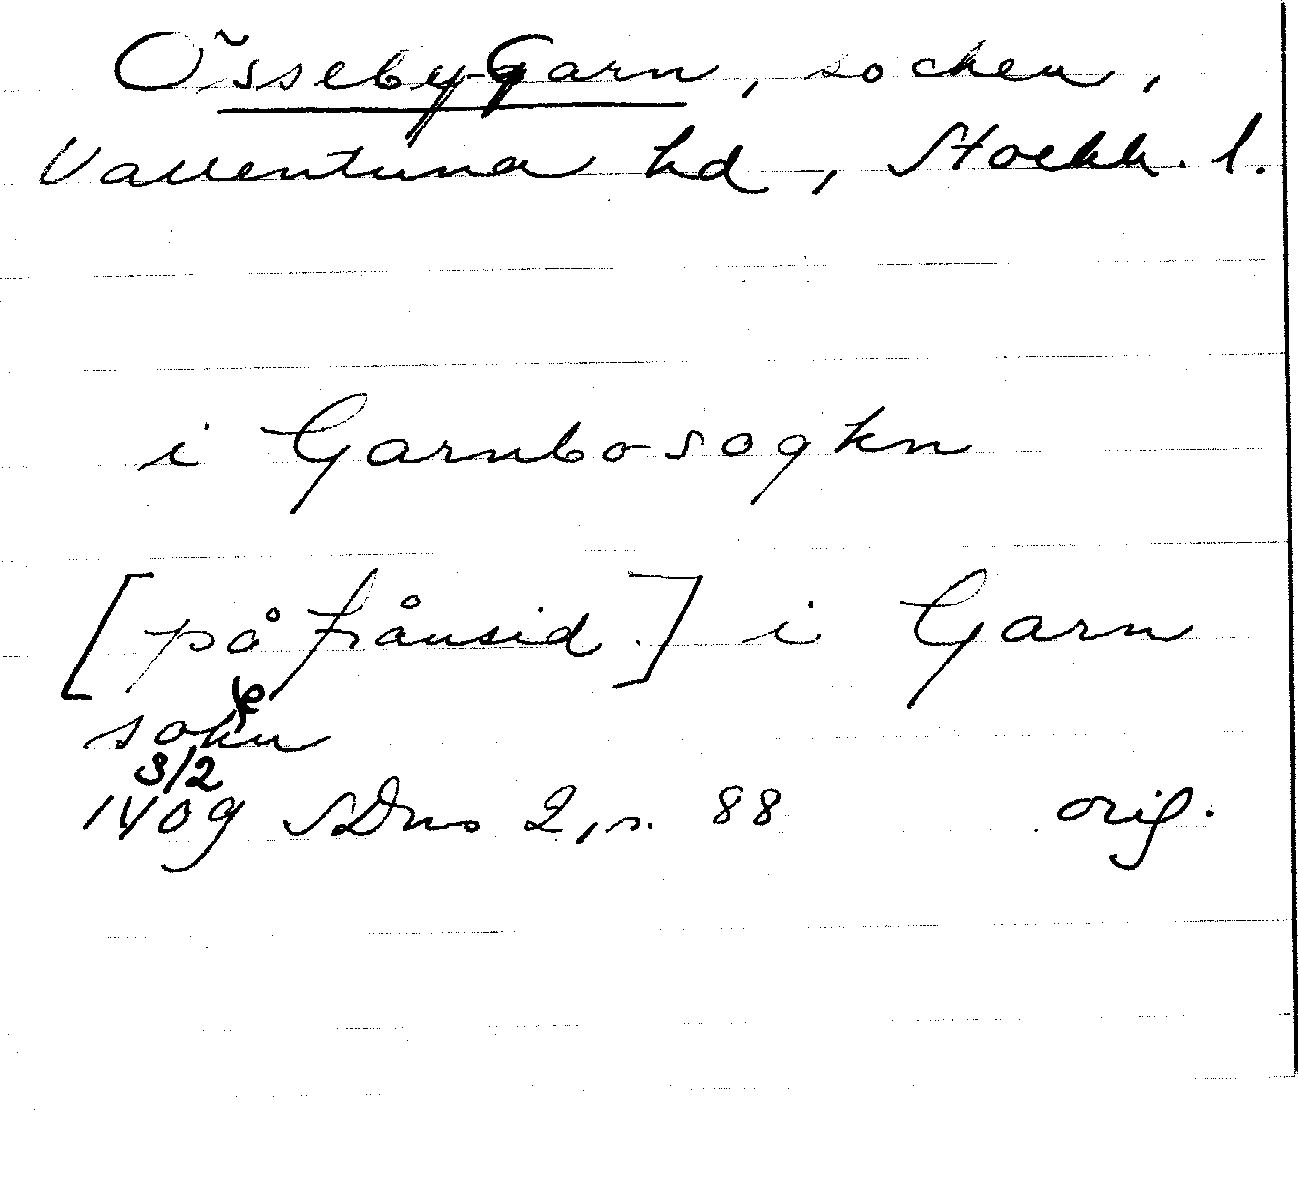 Össeby-Garn, socken,
Vallentuna hd, Stockh. l.
i Garnbo sogkn
[på frånsid.] i Garn
sokn
3/2
1409 SDns 2, s. 88 orig.